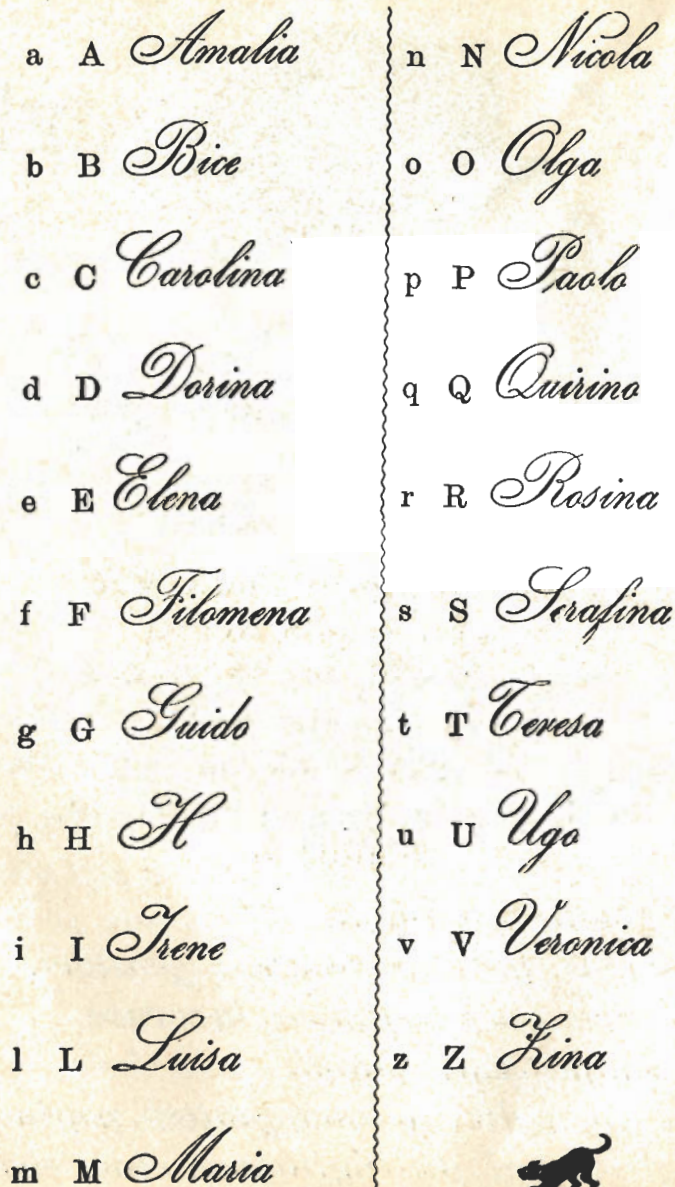 a A Amalia
b B Bice
c C Carolina
d D Dorina
e E Elena
f F Filomena
g G Guido
h H H
i I Irene
l L Luisa
m M Maria
n N Nicola
o O Olga
p P Paolo
q Q Quirino
r R Rosina
s S Serafina
t T Teresa
u U Ugo
v V Veronica
z Z Zina